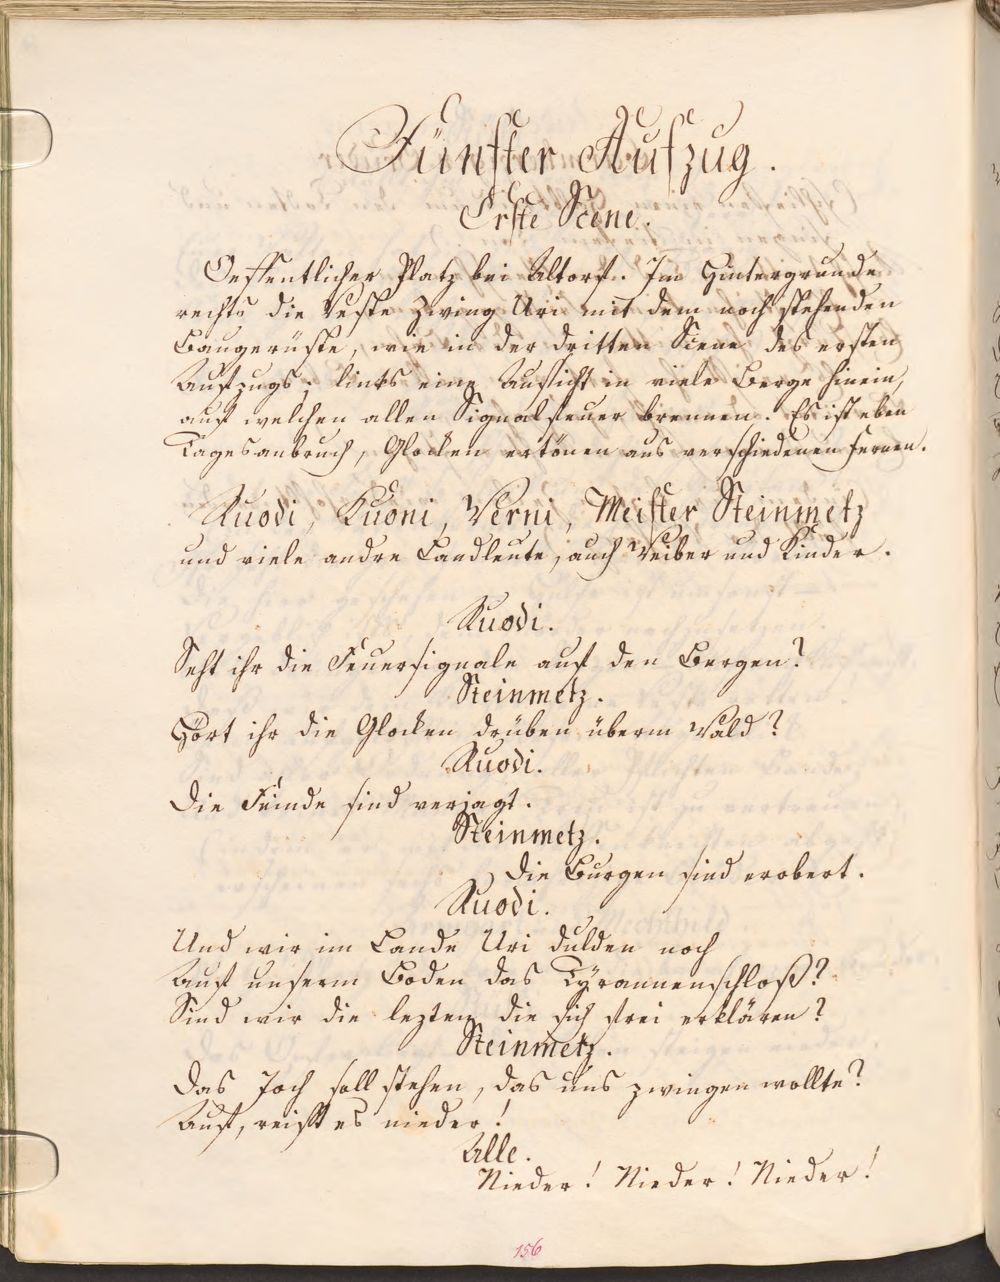 Fünfter Aufzug.
Erste Scene.
Oeffentlicher Platz bei Altorf. Im Hintergrunde
rechts die Veste Zwing Uri mit dem noch stehenden
Baugerüste, wie in der dritten Scene des ersten
Aufzugs; links eine Aussicht in viele Berge hinein,
auf welchen allen Signalfeuer brennen. Es ist eben
Tagesanbruch, Glocken ertönen aus verschiedenen Fernen.
Ruodi, Kuoni, Werni, Meister Steinmetz
und viele andre Landleute, auch Weiber und Kinder.
Ruodi.
Seht ihr die Feuersignale auf den Bergen?
Steinmetz.
Hört ihr die Glocken drüben überm Wald?
Ruodi.
Die Feinde sind verjagt.
Steinmetz.
Die Burgen sind erobert.
Ruodi.
Und wir im Lande Uri dulden noch
Auf unserm Boden das Tyrannenschloß?
Sind wir die lezten, die sich frei erklären?
Steinmetz.
Das Joch soll stehen, das uns zwingen wollte?
Auf, reißt es nieder!
Alle.
Nieder! Nieder! Nieder!
156